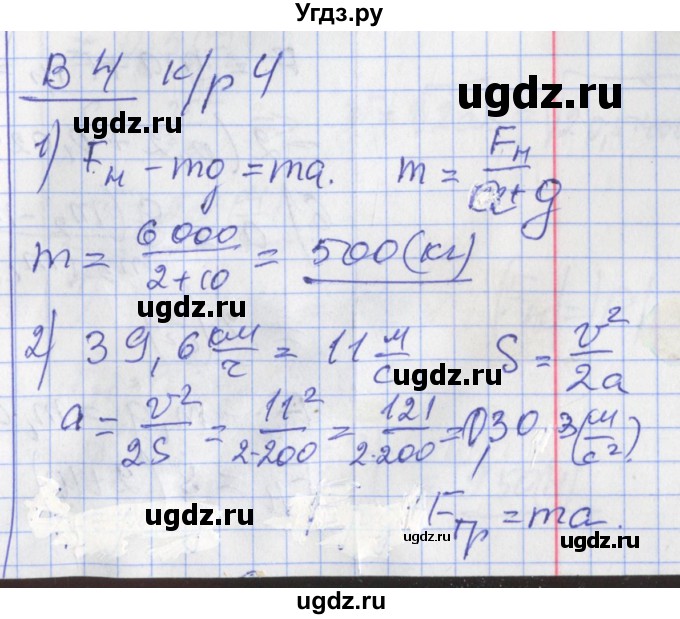 Угдз.ру
В 4 к/р 4
ugdz.ru
ugdz.ru
1) Fн – mg = ma. m = Fн/(a+g)
m = 6 000/(2+10) = 500(кг)
ugdz.ru
2) 39,6 км/ч = 11 м/с S = v²/2a
ugdz.ru
a = v²/2S = 11²/2·200 = 121/2·200 = 0,303(м/с²).
ugdz.ru
ugdz.ru
Fтр = ma.
ugdz.ru
ugdz.ru
ugdz.ru